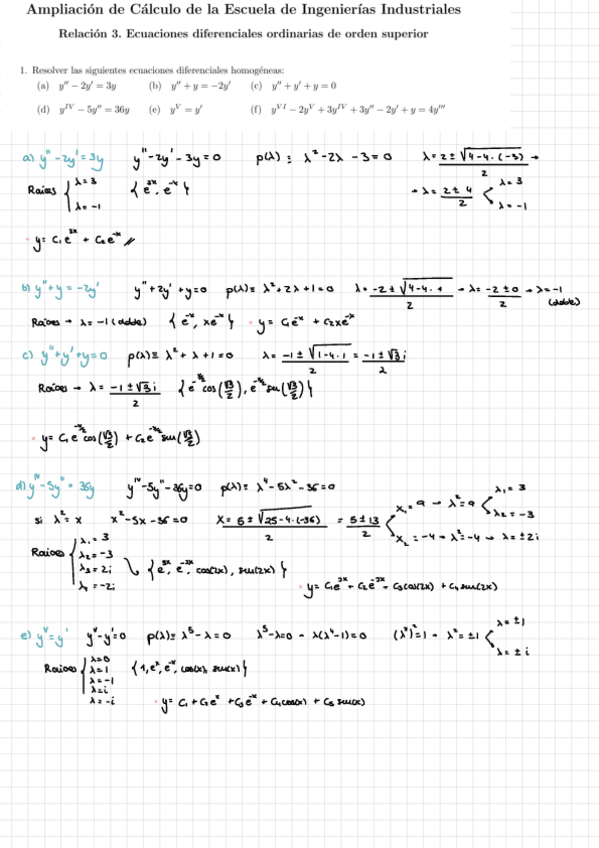 Ampliación de Cálculo de la Escuela de Ingenierías Industriales
Relación 3. Ecuaciones diferenciales ordinarias de orden superior
1. Resolver las siguientes ecuaciones diferenciales homogéneas:
(a) y'' − 2y' = 3y (b) y'' + y = −2y' (c) y'' + y' + y = 0
(d) y^{IV} − 5y'' = 36y (e) y^{V} = y' (f) y^{VI} − 2y^{V} + 3y^{IV} + 3y'' − 2y' + y = 4y'''
a) y''-2y'=3y y''-2y'-3y=0 p(λ) : λ²-2λ -3=0 λ= 2±√(4-4·(-3))/2 →
Raíces { λ=3 λ=-1 { e^{3x}, e^{-x} } → λ= 2±4/2 < λ=3 λ=-1
· y= C₁e^{3x} + C₂e^{-x} //
b) y''+y=-2y' y''+2y'+y=0 p(λ)≡ λ²+2λ+1=0 λ= -2±√(4-4·1)/2 → λ= -2±0/2 → λ=-1 (doble)
Raíces → λ=-1 (doble) { e^{-x}, xe^{-x} } · y= C₁e^{-x} + C₂xe^{-x}
c) y''+y'+y=0 p(λ)≡ λ²+λ+1=0 λ= -1±√(1-4·1)/2 = -1±√3 i/2
Raíces → λ= -1±√3 i/2 { e^{-x/2}cos(√3/2), e^{-x/2}sen(√3/2) }
· y= C₁e^{-x/2}cos(√3/2) + C₂e^{-x/2}sen(√3/2)
d) y^{IV}-5y''=36y y^{IV}-5y''-36y=0 p(λ)≡ λ⁴-5λ²-36=0
si λ²=x x²-5x-36=0 x= 5±√(25-4·(-36))/2 = 5±13/2 < x₁=9 → λ²=9 < λ₁=3 λ₂=-3
x₂=-4 → λ²=-4 → λ=±2i
Raíces { λ₁=3 λ₂=-3 λ₃=2i λ₄=-2i { e^{3x}, e^{-3x}, cos(2x), sen(2x) }
· y= C₁e^{3x} + C₂e^{-3x} + C₃cos(2x) + C₄sen(2x)
e) y^{V}=y' y^{V}-y'=0 p(λ)≡ λ⁵-λ=0 λ⁵-λ=0 → λ(λ⁴-1)=0 (λ²)²=1 → λ²=±1 < λ=±1 λ=±i
Raíces { λ=0 λ=1 λ=-1 λ=i λ=-i { 1, e^{x}, e^{-x}, cos(x), sen(x) }
· y= C₁+C₂e^{x} +C₃e^{-x} + C₄cos(x) + C₅ sen(x)